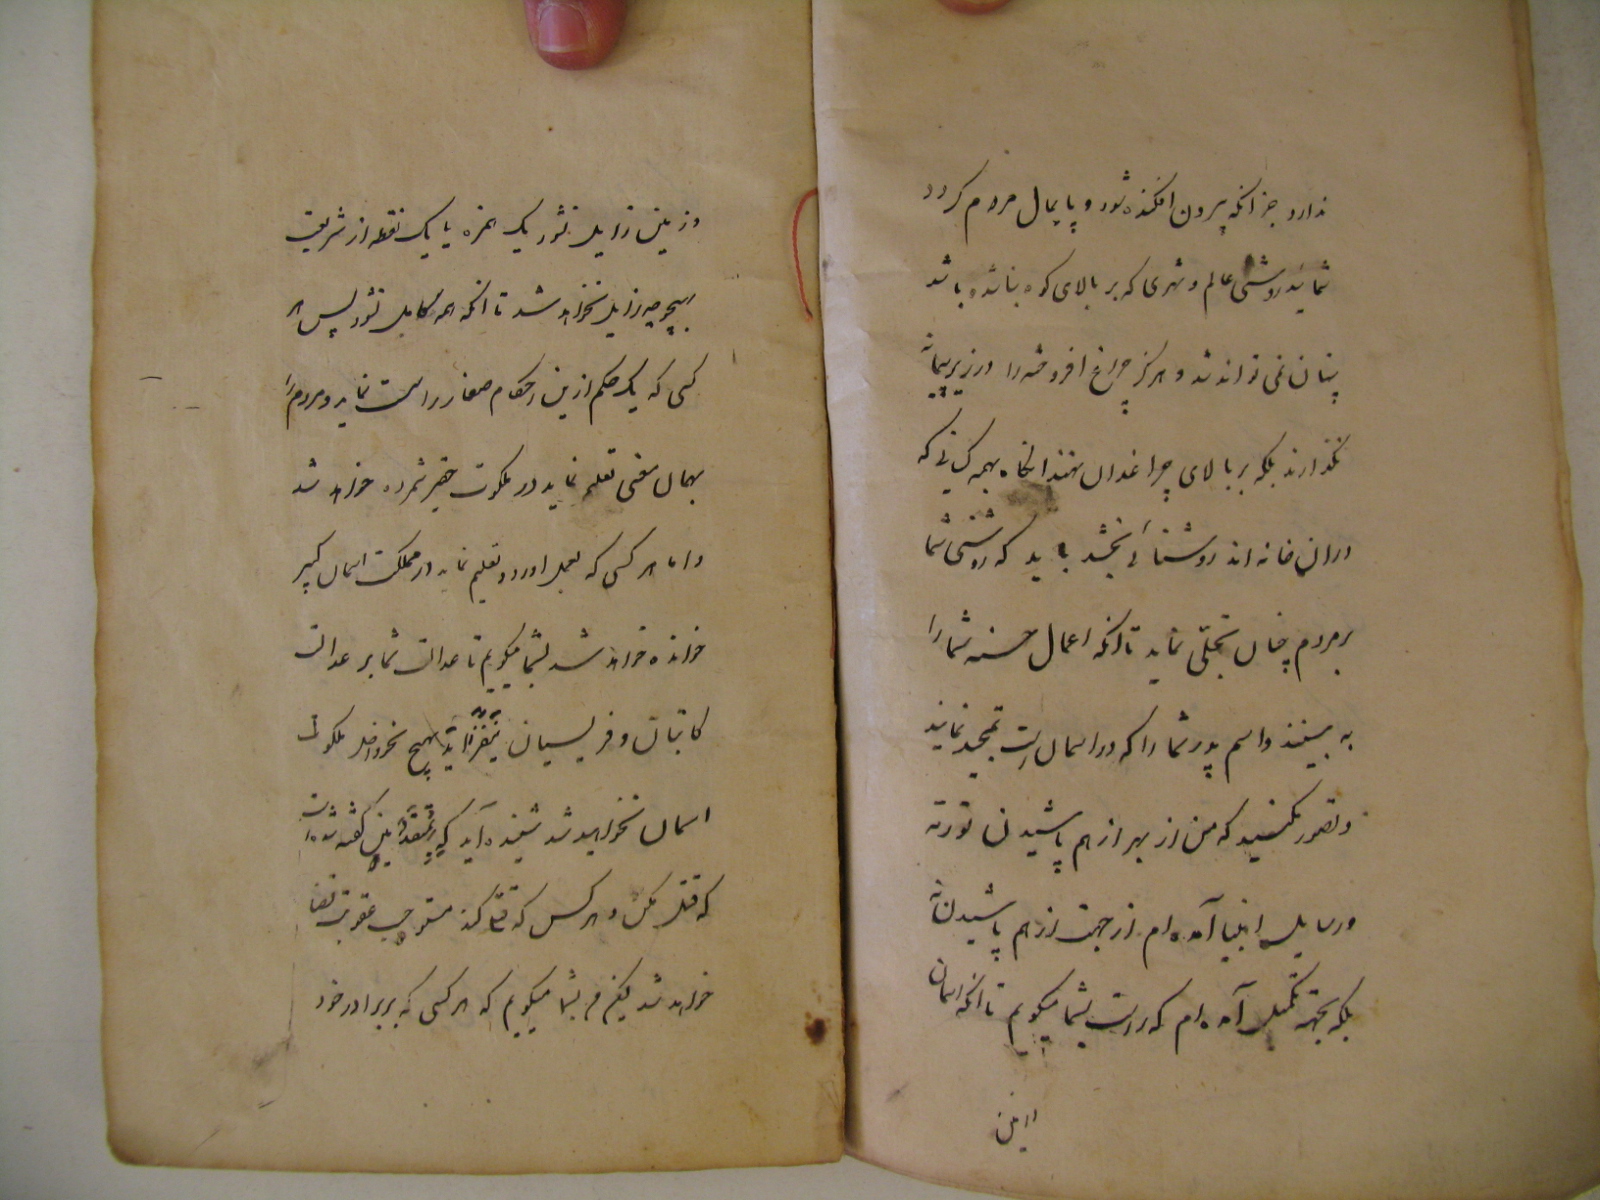 ندارد جز انکه بیرون افکنده شود و پایمال مردم کردد
شمائید روشنی عالم و شهری که بر بالای کوه بنا شده باشد
پنهان نمی تواند شد و هرکز چراغ افروخته را در زیر پیمانه
نکذارند بلکه بر بالای چراغدان نهند انکاه بهمه کسانی که
در ان خانه اند روشنائی بخشد باید که روشنی شما
بر مردم چنان تجلّی نماید تا انکه اعمال حسنه شما را
به بینند و اسم پدر شما را که در اسمان است تمجید نمایند
و تصور نکنید که من از بهر از هم پاشیدن توریة
و رسایل انبیا آمده ام از جهت از هم پاشیدن نه
بلکه بجهة تکمیل آمده ام که راست بشما میکویم تا انکه اسمان
و زمین زایل نشود یک همزه یا یک نقطه از شریعت
بهیچوجه زایل نخواهد شد تا انکه همه کامل نشود پس هر
کسی که یک حکم ازین احکام صغار را سست نماید و مردم را
بهمان معنی تعلیم نماید در ملکوت حقیر شمرده خواهد شد
و اما هر کسی که بعمل اورد و تعلیم نماید در مملکت اسمان کبیر
خوانده خواهد شد بشما میکویم تا عدالت شما بر عدالت
کاتبان و فریسیان نیفزاید بهیچ نحو داخل ملکوت
اسمان نخواهید شد شنیده آید که بمتقدمین کفته شده است
که قتل مکن و هر کس که قتل کند مستوجب عقوبت قضا
خواهد شد لیکن من بشما میکویم که هر کسی که بر برادر خود